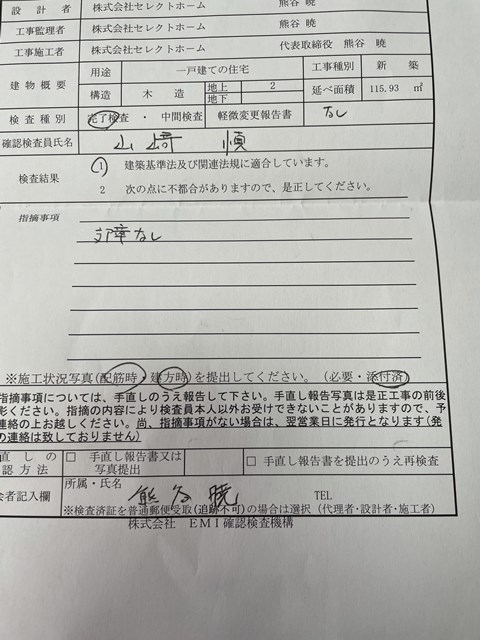 設計者 株式会社セレクトホーム 熊谷 暁
工事監理者 株式会社セレクトホーム 熊谷 暁
工事施工者 株式会社セレクトホーム 代表取締役 熊谷 暁
建物概要 用途 一戸建ての住宅 工事種別 新築
構造 木造 地上 2 地下 延べ面積 115.93 ㎡
検査種別 完了検査・中間検査 軽微変更報告書 なし
確認検査員氏名 山崎 順
検査結果 1 建築基準法及び関連法規に適合しています。
2 次の点に不都合がありますので、是正してください。
指摘事項
支障なし
※施工状況写真(配筋時・建方時)を提出してください。(必要・添付済)
指摘事項については、手直しのうえ報告して下さい。手直し報告写真は是正工事の前後
影ください。指摘の内容により検査員本人以外お受けできないことがありますので、予
連絡の上お越しください。尚、指摘事項がない場合は、翌営業日に発行となります(発
の連絡は致しておりません)
直しの
認方法 □ 手直し報告書又は写真提出 □ 手直し報告書を提出のうえ再検査
会者記入欄 所属・氏名
熊谷 暁 TEL
※検査済証を普通郵便受取(追跡不可)の場合は選択(代理者・設計者・施工者)
株式会社 EMI確認検査機構